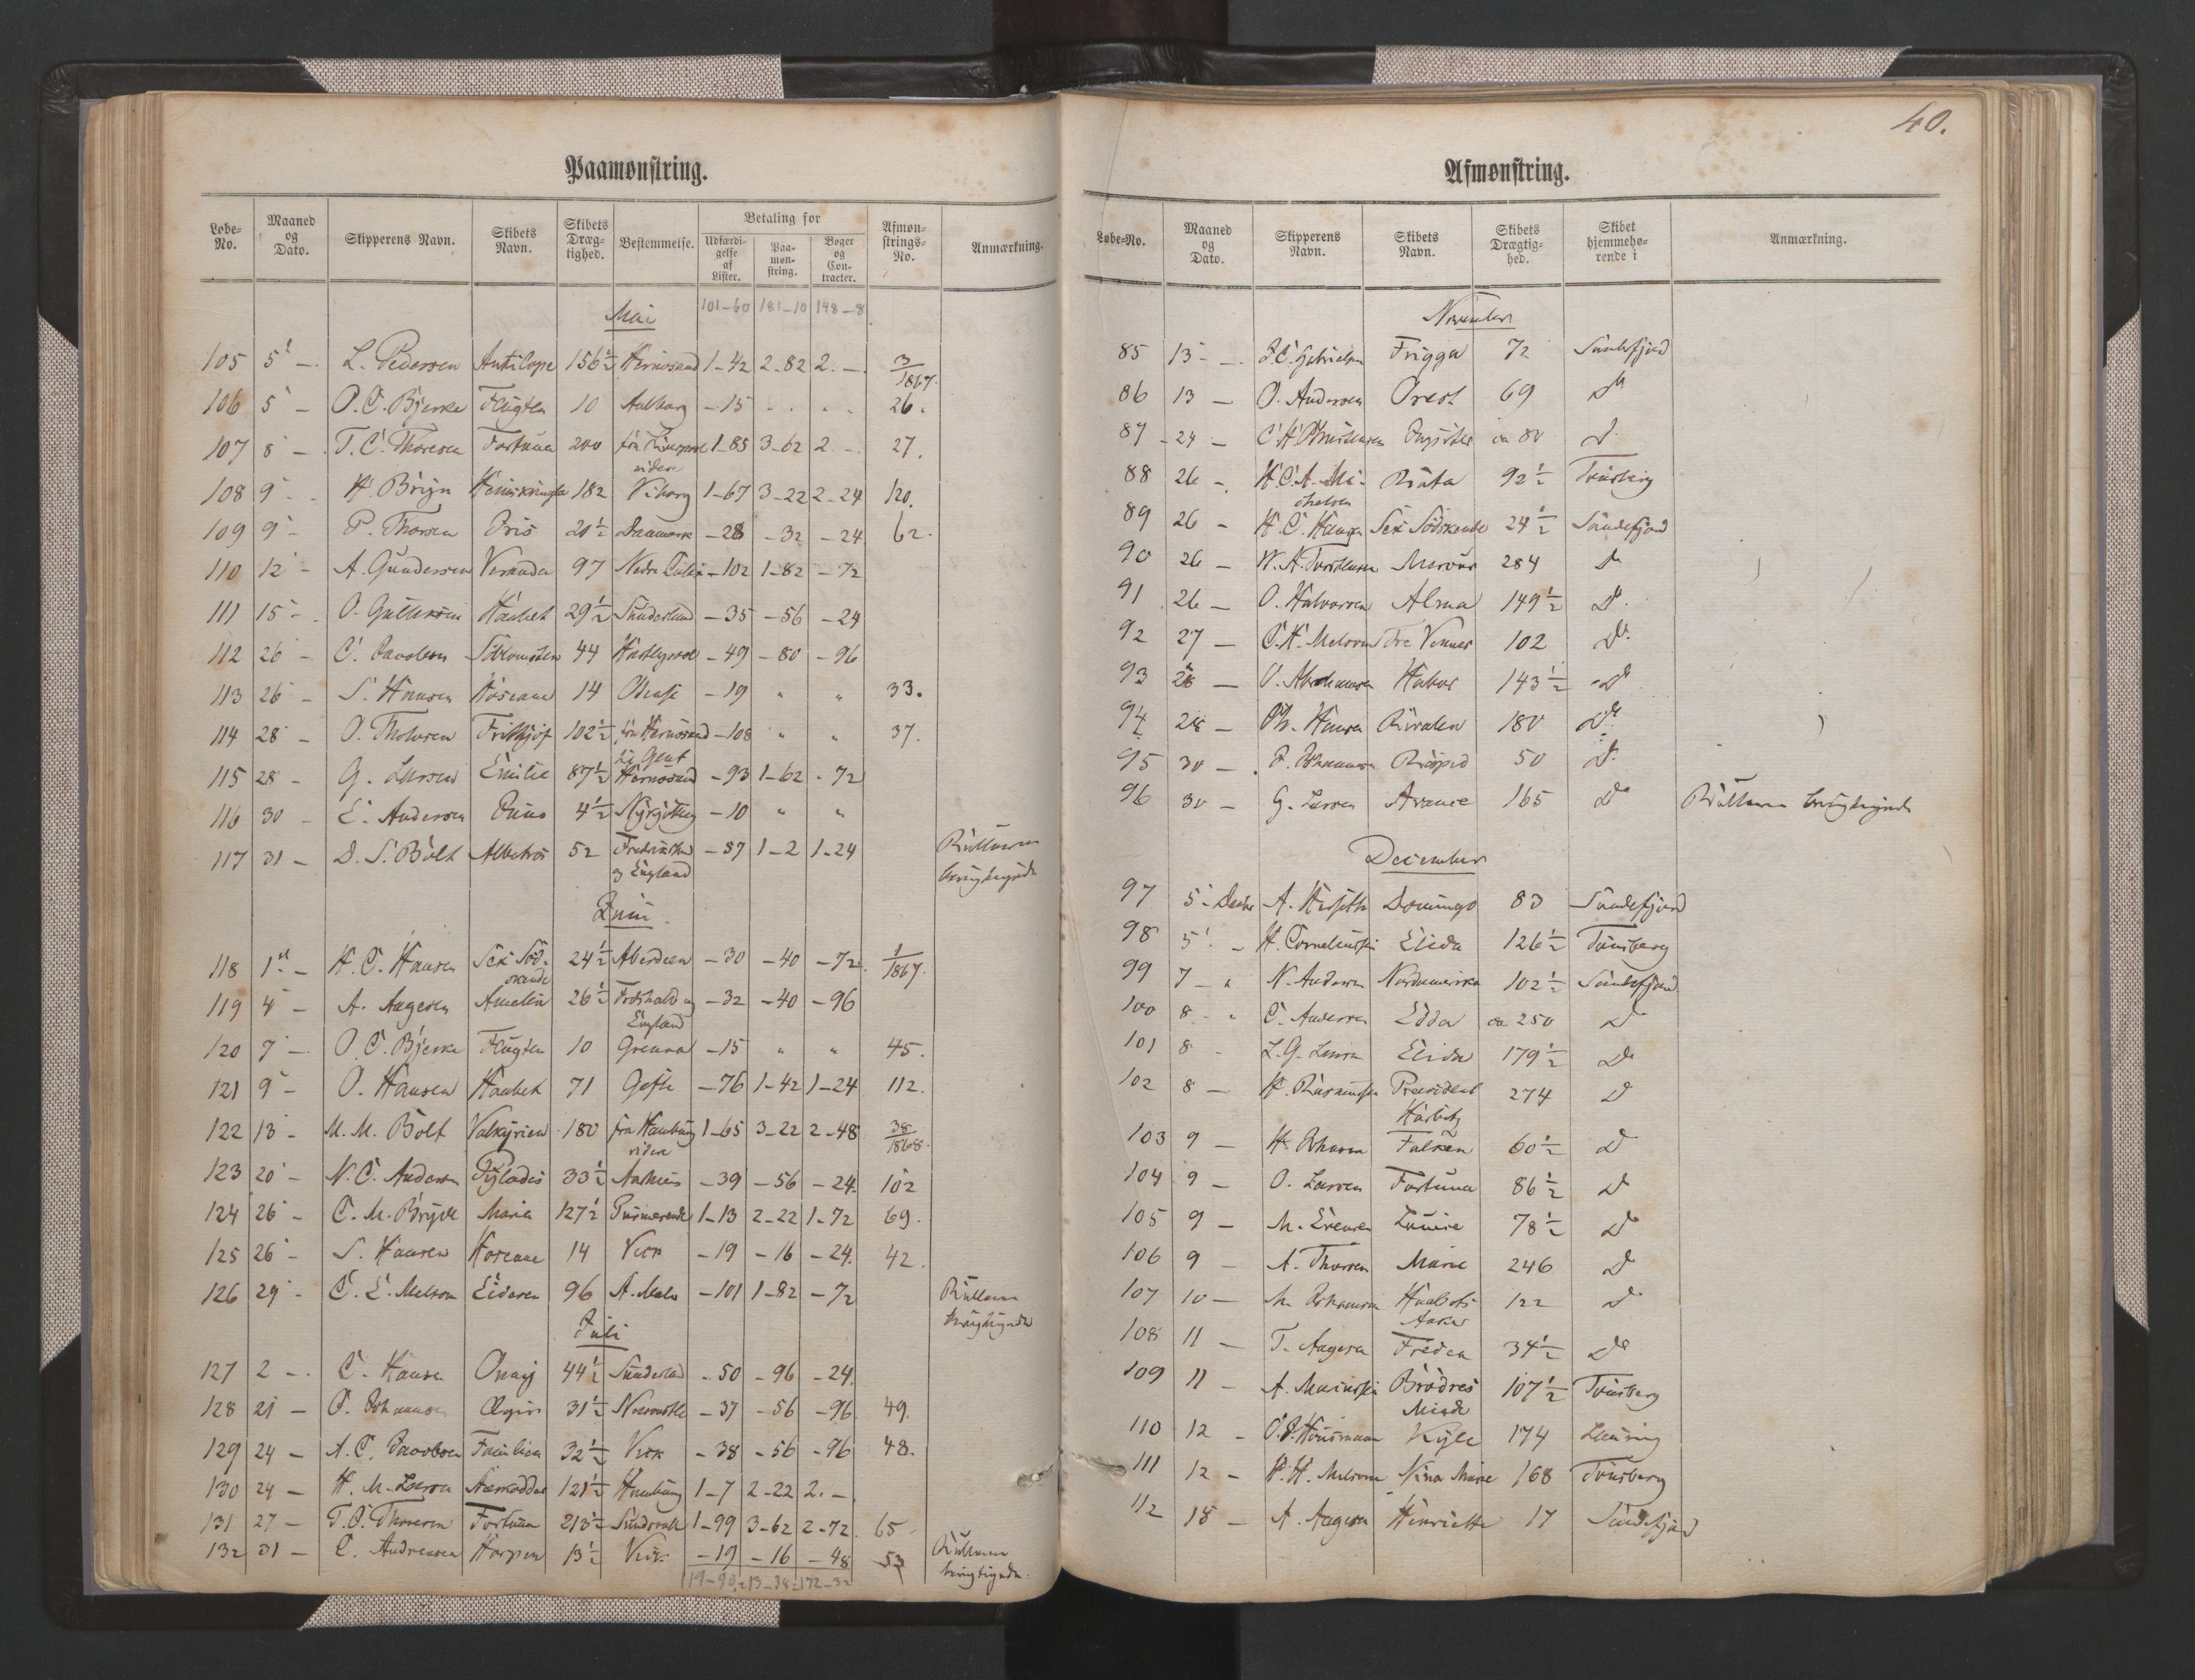 40.
Paamønstring.
Løbe-No. Maaned og Dato. Skipperens Navn. Skibets Navn. Skibets Dræg-tighed. Bestemmelse. Betaling for Udfærdi-gelse af Lister. Paa-møn-string. Bøger og Con-tracter. Afmøn-strings-No. Anmærkning.
Mai 101-60 181-10 148-8
105 5 - L. Pedersen Antilope 156½ Hernøsand 1-42 2-82 2. - 3/1867.
106 5 - O. C. Bjerke Flugten 10 Aalborg -15 " " 26.
107 8 - T. C. Thoresen Fortuna 200 fra Liverpool videre 1-85 3-62 2. - 27.
108 9 - H. Bryn Heimskringla 182 Viborg 1-67 3-22 2-24 120.
109 9 - P. Thorsen Pris 20½ Danmark -28 -32 -24 62.
110 12 - A. Gundersen Veranda 97 Nedre -102 1-82 -72
111 15 - O. Gullersen Haabet 29½ Sunderland -35 -56 -24
112 26 - C. Jacobsen Söblomsten 44 Hartlepool -49 -80 -96
113 26 - S. Hansen Hoseane 14 Odense -19 " " 33.
114 28 - O. Tholvsen Frithjof 102½ fra Hernøsand til Gent -108 " " 37.
115 28 - G. Larsen Emilie 87½ Hernøsand -93 1-62 -72
116 30 - E. Andersen Juno 4½ Nykjøbing -10 " "
117 31 - D. S. Bolt Albatros 52 og England -57 1-2 1-24 Rullerne berigtigede
Juni.
118 1st - H. C. Hansen Sex Söd-skende 24½ Aberdeen -30 -40 -72. 1/1867.
119 4 - A. Aagesen Amelia 26½ Fredrikshald og England -32 -40 -96
120 7 - O. C. Bjerke Flugten 10 Grenaa -15 " " 45.
121 9 - O. Hansen Haabet 71 Gefle -76 1-42 1-24 112.
122 13 - M. M. Bolt Valkyrien 180 fra Hamburg videre 1-65 3-22 2-48 38/1868.
123 20 - N. C. Andersen Pylades 33½ Aarhuus -39 -56 -24. 102
124 26 - C. M. Bryde Maria 127½ Purmerende 1-13 2-22 1-72 69.
125 26 - S. Hansen Hoseane 14 Vick -19 -16 -24. 42.
126 29 - C. E. Melsom Eideren 96 St. Malo -101 1-82 -72 Rullerne berigtigede
Juli
127 2 - C. Hansen Onay 44½ Sunderland -50 -96 -24.
128 21 - O. Johannsen Ægir 31½ Newcastle -37 -56 -96. 49.
129 24 - A. C. Jacobsen Familien 32½ Vick -38 -56 -96 48.
130 24 - H. M. Larsen Næsodden 121½ Hamburg 1-7 2-22 2. -
131 27 - T. C. Thoresen Fortuna 213½ Sundsvall 1-99 3-62 2-72. 65
132 31 - C. Andreasen Harpen 13½ Vick -19 -16 -48 53 Rullerne berigtigede.
19-90 213-38 172-32
Afmønstring.
Løbe-No. Maaned og Dato. Skipperens Navn. Skibets Navn. Skibets Drægtig-hed. Skibet hjemmehø-rende i Anmærkning.
November
85 13 - J. C. Gabrielsen Frigga 72 Sandefjord
86 13 - O. Andersen Orest 69 Do
87 24 - C. H. Christensen Jupiter ca 80 Do
88 26 - H. C. A. Mi-chelsen Rota 92½ Tønsberg
89 26 - H. C. Hansen Sex Södskende 24½ Sandefjord
90 26 - W. A. Torstensen Mercur 284 Do
91 26 - O. Halvorsen Alma 149½ Do.
92 27 - C. H. Melsom Tre Venner 102 Do.
93 28 - O. Abrahamsen Habor 143½ Do
94 28 - Chr. Hansen Rivalen 180 Do.
95 30 - P. Johannsen Rapid 50 Do.
96 30 - G. Larsen Avance 165 Do Rullerne berigtigede
December
97 5 - Decbr A. Hesseth Domingo 83 Sandefjord
98 5 - H. Corneliussen Elida 126½ Tønsberg
99 7 - " N. Andersen Nordamerika 102½ Sandefjord
100 8 - " C. Andersen Edda ca 250 Do
101 8 - L. G. Larsen Elida 179½ Do
102 8 - H. Rasmussen Præsident Harbitz 274 Do
103 9 - H. Johansen Falken 60½ Do
104 9 - O. Larsen Fortuna 86½ Do
105 9 - M. Evensen Louise 78½ Do
106 9 - A. Thorsen Marie 246 Do
107 10 - M. Johannsen Haabets Anker 122 Do
108 11 - T. Aagesen Freden 34½ Do
109 11 - A. Mariussen Brødres Minde 107½ Tønsberg
110 12 - O. J. Housmann Kyle 174 Laurvig
111 12 - H. H. Melsom Nina Marie 168 Tønsberg
112 18 - A. Aagesen Henriette 17 Sandefjord